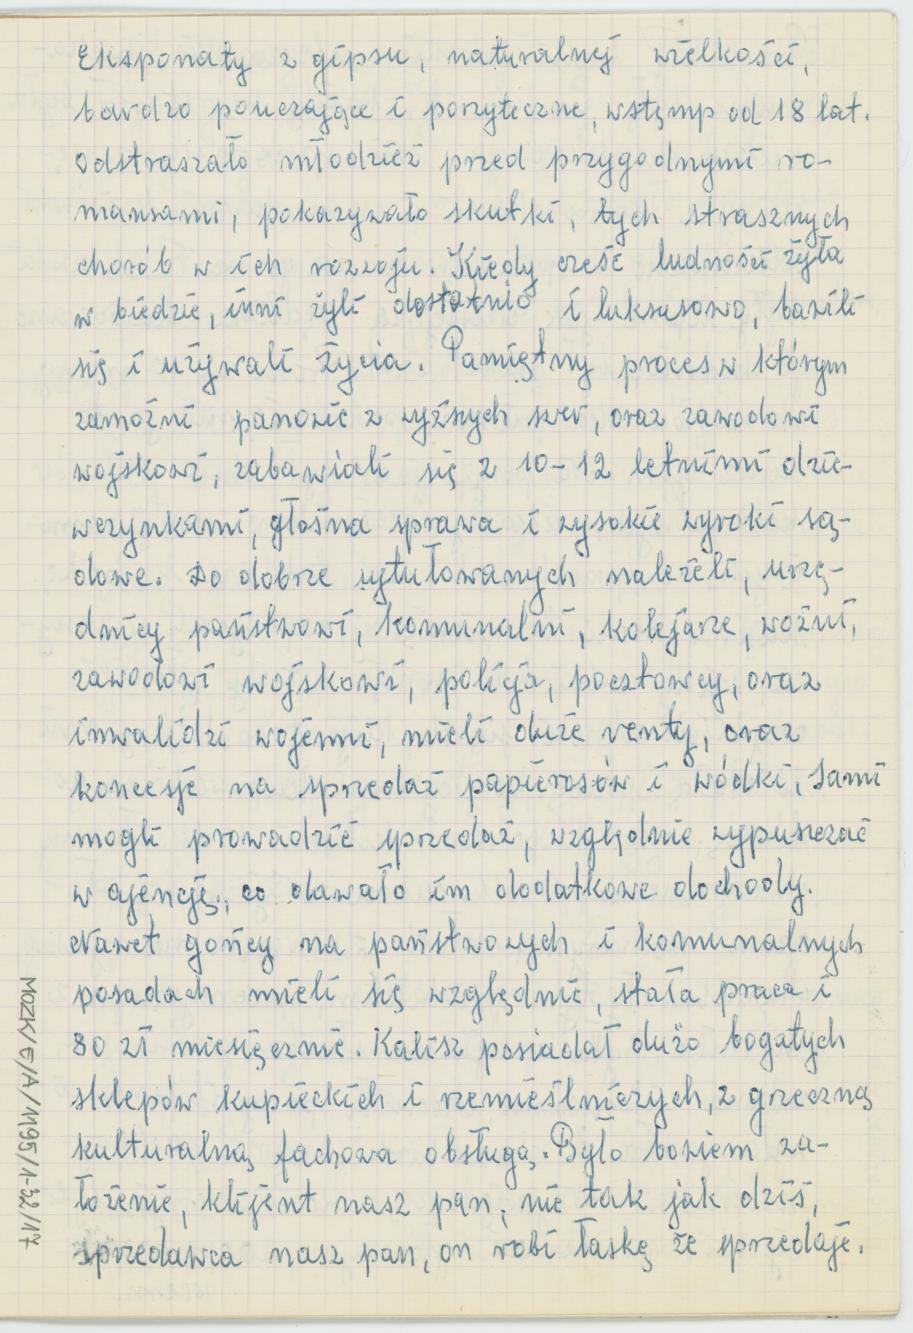 Eksponaty z gipsu, naturalnej wielkości,
bardzo pouczające i porzyteczne, wstęmp od 18 lat.
Odstraszało młodzież przed przygodnymi ro-
mansami, pokazywało skutki, tych strasznych
chorób w ich rozwoju. Kiedy cześć ludności żyła
w biedzie, inni żyli dostatnio i luksusowo, bawili
się i używali życia. Pamiętny proces w którym
zamożni panowie z wyższych swer, oraz zawodowi
wojskowi, zabawiali się z 10-12 letnimi dzie-
wczynkami, głośna sprawa i wysokie wyroki są-
dowe. Do dobrze sytułowanych należeli, urzę-
dnicy państwowi, komunalni, kolejarze, woźni,
zawodowi wojskowi, policja, pocztowcy, oraz
inwalidzi wojenni, mieli duże renty, oraz
koncesje na sprzedaż papierosów i wódki, sami
mogli prowadzić sprzedaż, względnie wypuszczać
w ajencję, co dawało im dodatkowe dochody.
Nawet gońcy na państwowych i komunalnych
posadach mieli się względnie, stała praca i
80 zł miesięcznie. Kalisz posiadał dużo bogatych
sklepów kupieckich i rzemieślniczych, z grzeczną
kulturalną fachowa obsługą. Było bowiem za-
łożenie, klijent nasz pan, nie tak jak dziś,
sprzedawca nasz pan, on robi łaskę że sprzedaje.
MOZK/E/A/1195/1-22/17